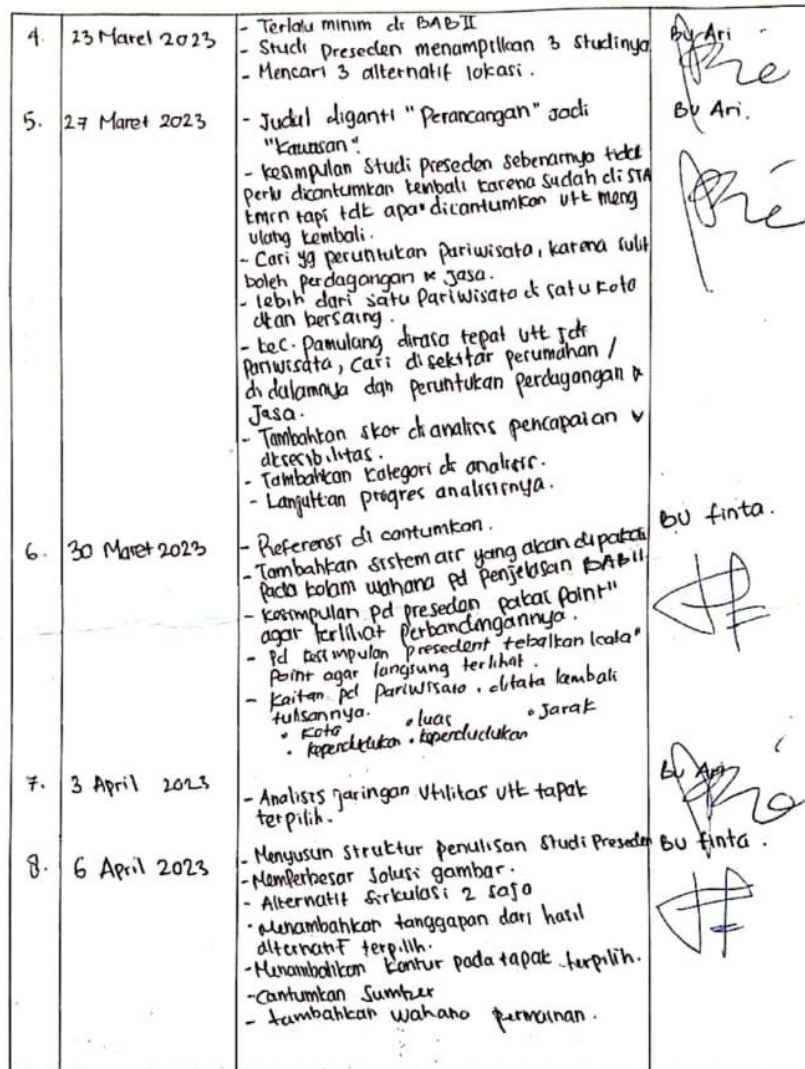 4. 23 Maret 2023 - Terlalu minim di BAB II Bu Ari
- Studi Preseden menampilkan 3 studinya
- Mencari 3 alternatif lokasi.
5. 27 Maret 2023 - Judul diganti "Perancangan" jadi Bu Ari.
"Kawasan".
- kesimpulan Studi Preseden sebenarnya tidak
perlu dicantumkan kembali karena sudah di STA
kmrn tapi tdk apa" dicantumkan utk meng
ulang kembali.
- Cari yg peruntukan Pariwisata, karena sulit
boleh perdagangan & jasa.
- lebih dari satu Pariwisata di satu kota
akan bersaing.
- kec. Pamulang dirasa tepat utk jdi
Pariwisata, Cari disekitar perumahan /
di dalamnya dgn peruntukan perdagangan &
Jasa.
- Tambahkan skor di analisis pencapaian &
aksesibilitas.
- Tambahkan kategori di analisis.
- Lanjutkan progres analisisnya.
6. 30 Maret 2023 - Referensi di cantumkan. Bu finta.
- Tambahkan sistem air yang akan dipakai
pada kolam wahana pd Penjelasan BAB II.
- kesimpulan pd preseden pakai point"
agar terlihat Perbandingannya.
- Pd kesimpulan presedent tebalkan kata"
Point agar langsung terlihat.
- kaitan pd Pariwisata. ditata kembali
tulisannya.
• kota • luas • Jarak
• kependudukan • kependudukan
7. 3 April 2023 - Analisis jaringan Utilitas utk tapak Bu Ari
terpilih.
8. 6 April 2023 - Menyusun struktur penulisan Studi Preseden Bu finta.
- Memperbesar solusi gambar.
- Alternatif sirkulasi 2 saja
- Menambahkan tanggapan dari hasil
alternatif terpilih.
- Menambahkan kontur pada tapak terpilih.
- Cantumkan Sumber
- tambahkan wahana permainan.